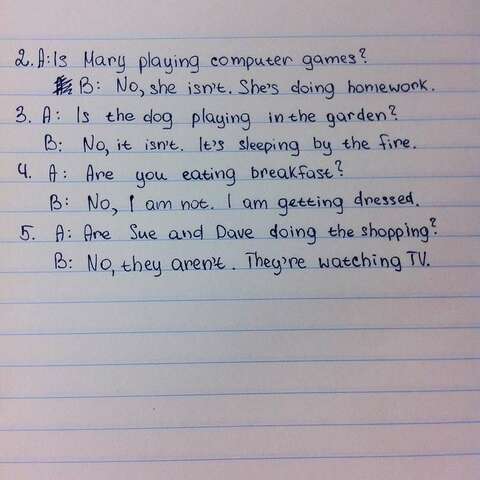 2. A: Is Mary playing computer games?
B: No, she isn't. She's doing homework.
3. A: Is the dog playing in the garden?
B: No, it isn't. It's sleeping by the fire.
4. A: Are you eating breakfast?
B: No, I am not. I am getting dressed.
5. A: Are Sue and Dave doing the shopping?
B: No, they aren't. They're watching TV.